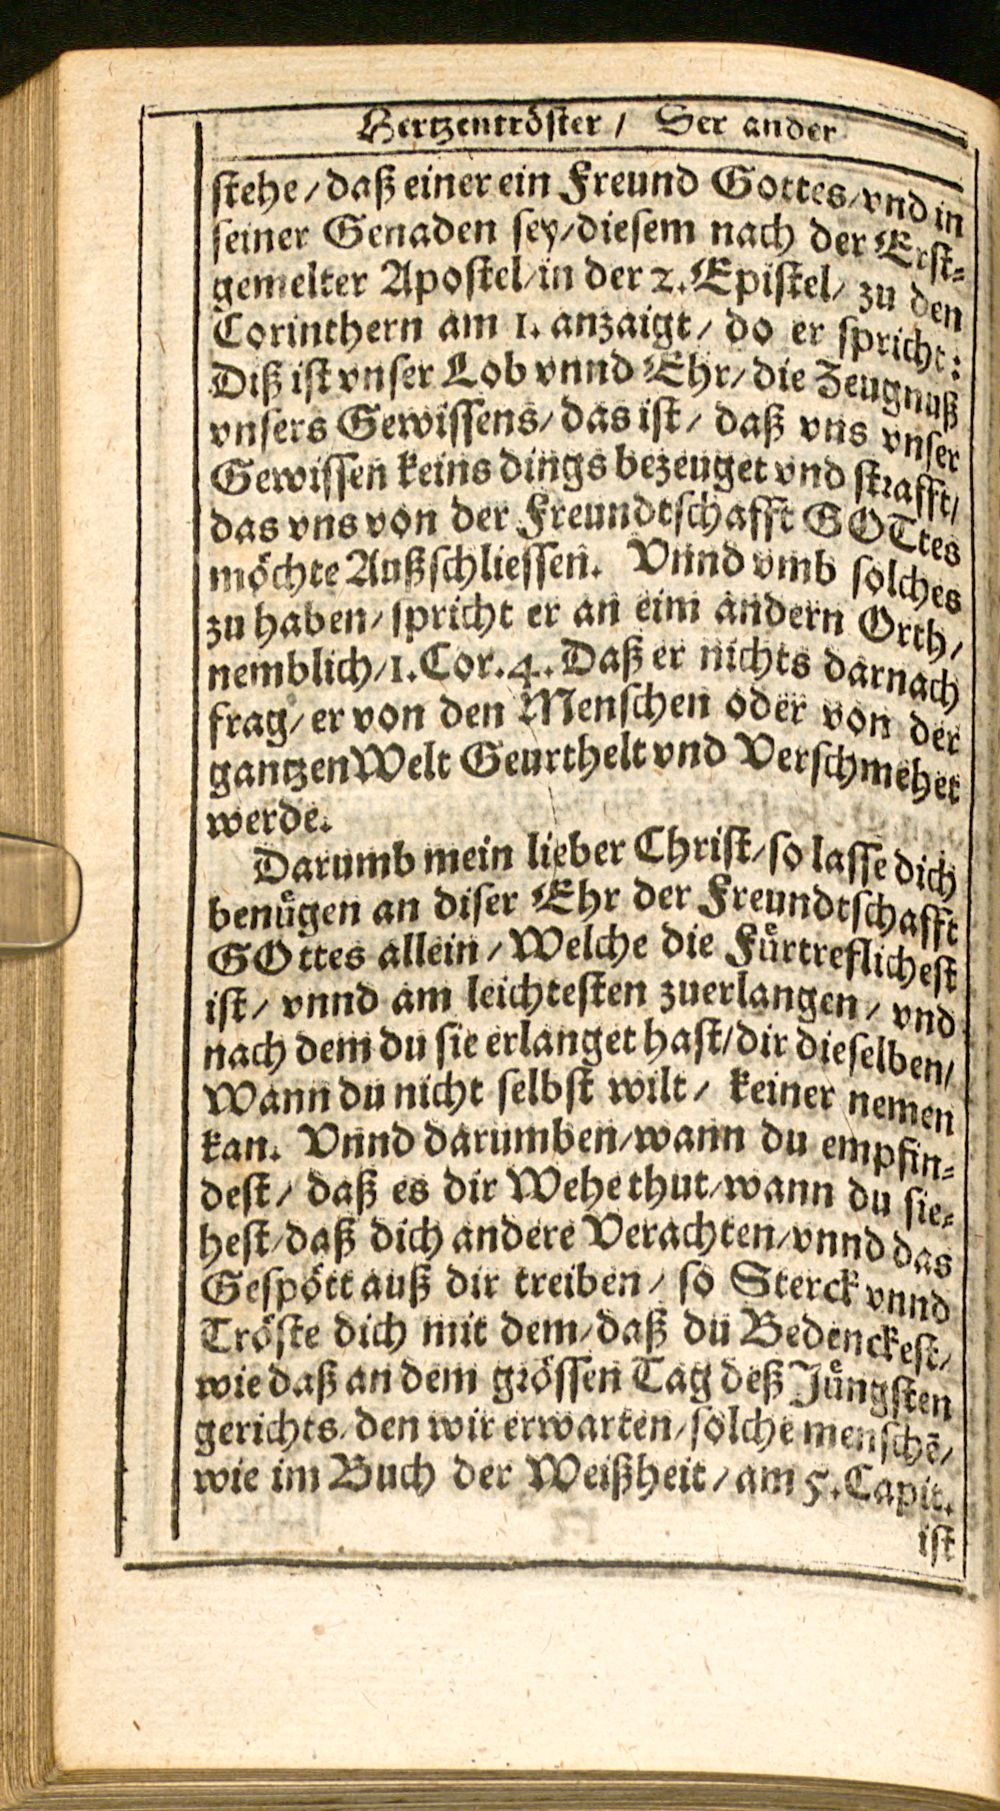 Hertzentröster / Der ander
stehe / daß einer ein Freund Gottes / vnd in
seiner Genaden sey / diesem nach der Erst-
gemelter Apostel / in der 2. Epistel / zu den
Corinthern am 1. anzaigt / do er spricht:
Diß ist vnser Lob vnnd Ehr / die Zeugnuß
vnsers Gewissens / das ist / daß vns vnser
Gewissen keins dings bezeuget vnd strafft /
das vns von der Freundtschafft GOTtes
möchte Außschliessen. Vnnd vmb solches
zu haben / spricht er an eim andern Orth /
nemblich / 1. Cor. 4. Daß er nichts darnach
frag / er von den Menschen oder von der
gantzen Welt Geurthelt vnd Verschmehet
werde.
Darumb mein lieber Christ / so lasse dich
benuͤgen an diser Ehr der Freundtschafft
GOttes allein / Welche die Fuͤrtreflichest
ist / vnnd am leichtesten zuerlangen / vnd
nach dem du sie erlanget hast / dir dieselben /
Wann du nicht selbst wilt / keiner nemen
kan. Vnnd darumben / wann du empfin-
dest / daß es dir Wehe thut / wann du sie-
hest / daß dich andere Verachten / vnnd das
Gespött auß dir treiben / so Sterck vnnd
Tröste dich mit dem / daß du Bedenckest /
wie daß an dem grössen Tag deß Juͤngsten
gerichts / den wir erwarten / solche menschē /
wie im Buch der Weißheit / am 5. Capit.
ist